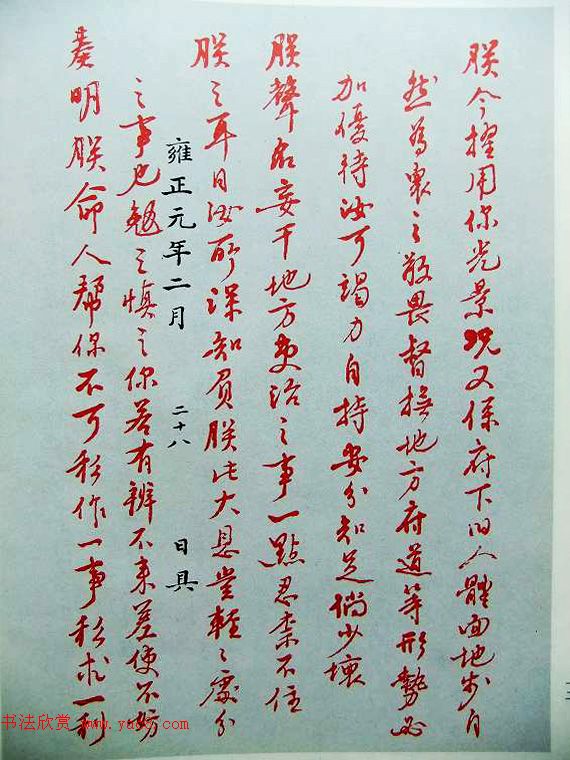 朕今擢用你光景況又係府下旧人體面地步自
然為衆之敬畏督撫地方府道等形勢必
加優待汝可竭力自持安分知足倘少壞
朕聲名妄干地方吏治之事一點忍柰不住
朕之耳目汝所深知負朕此大恩豈輕之處分
雍正元年二月 二十八 日具
之事也勉之慎之你若有辦不來差使不妨
奏明朕命人幫你不可私作一事私求一利
书法欣赏